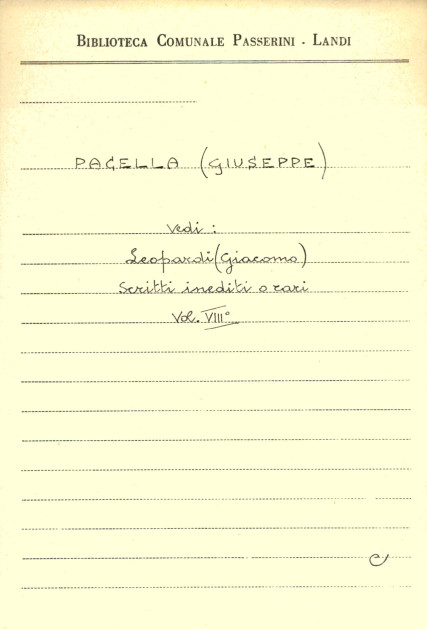 BIBLIOTECA COMUNALE PASSERINI - LANDI
PAGELLA (GIUSEPPE)
Vedi:
Leopardi (Giacomo)
Scritti inediti o rari
Vol. VIII°
C